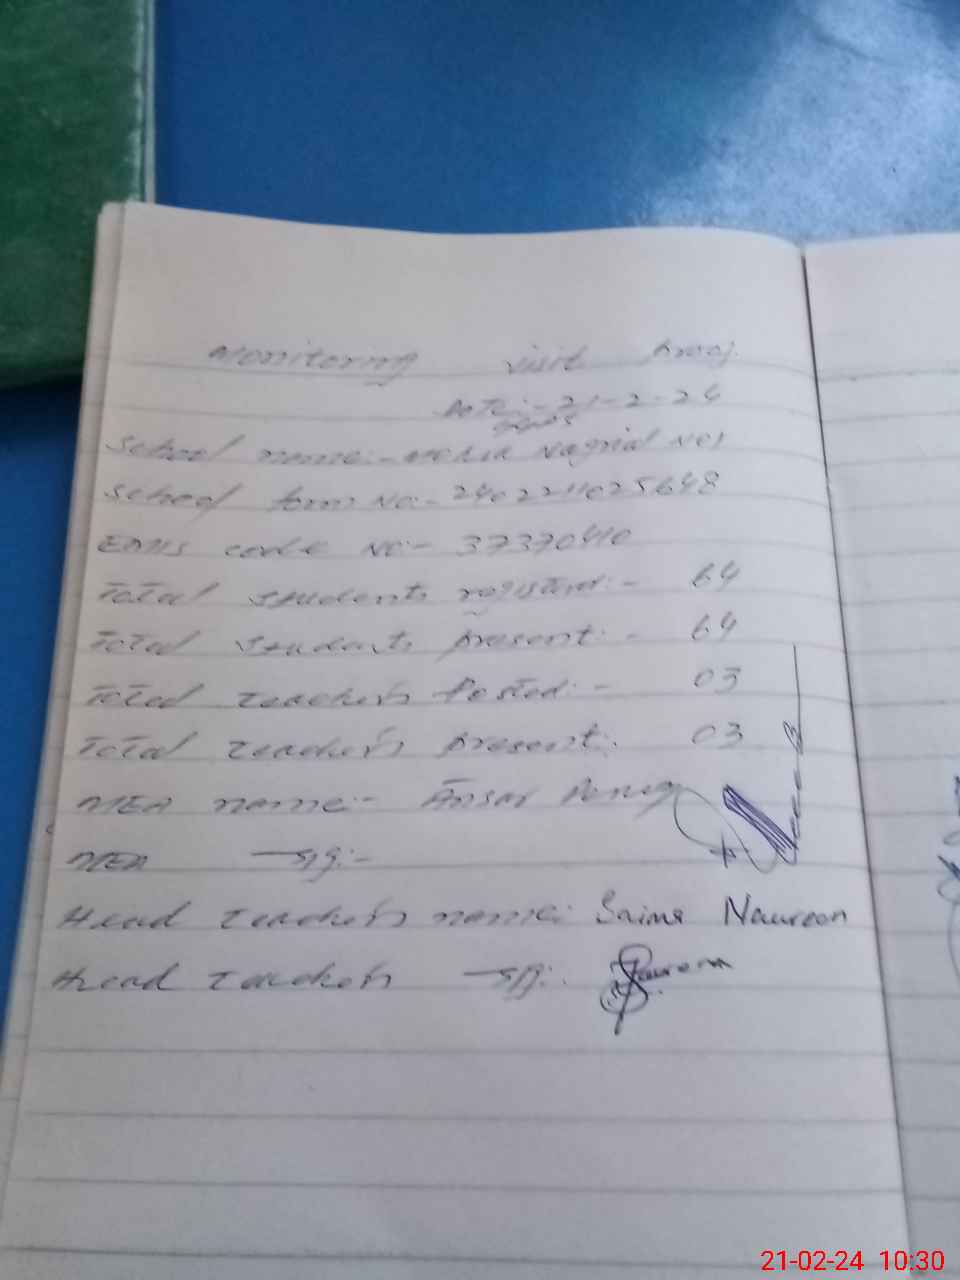 Monitoring visit Proof.
Date:- 21-2-24
GGPS
School name:- Nagrial No1
School form No:- 2402211025648
EMIS code No:- 37370410
Total students registerd:- 64
Total students present:- 64
Total teachers Posted:- 03
Total teachers present:. 03
MEA name:- Ansar
MEA sig:-
Head teacher's name: Saima Naureen
Head teacher's sig:.
21-02-24 10:30